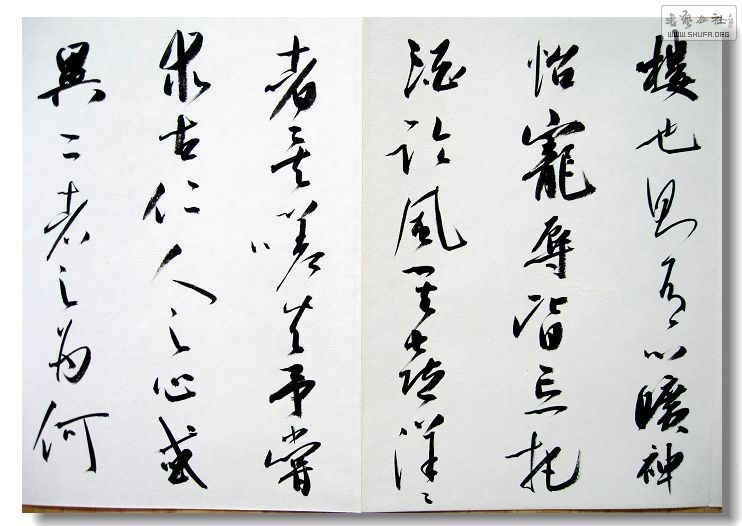 書藝公社
WWW.SHUFA.ORG
樓也則有心曠神
怡寵辱皆忘把
酒臨風其喜洋〻
者矣嗟夫予嘗
求古仁人之心或
異二者之為何